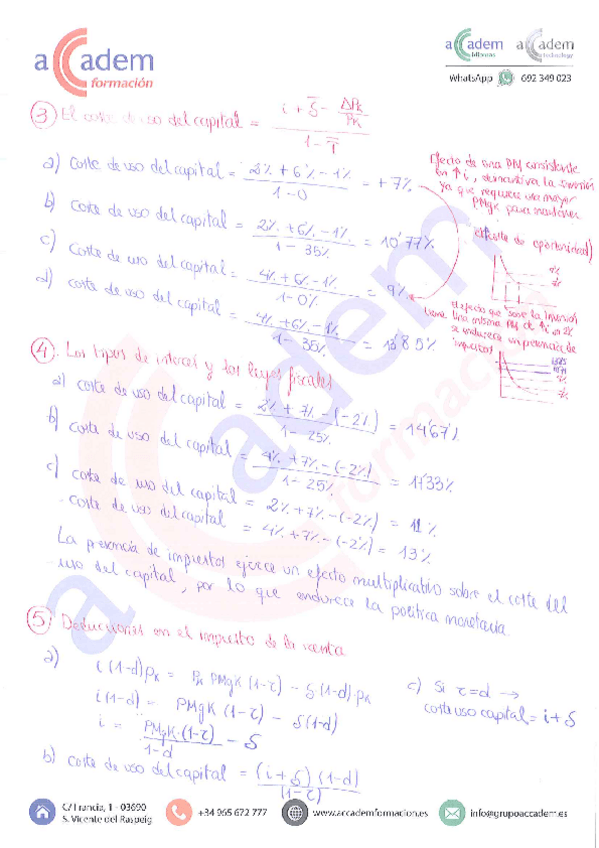 aCCadem
formación
aCCadem
idiomas
aCCadem
technology
WhatsApp 692 349 023
③ El coste de uso del capital = i + δ - ΔPk/Pk / 1 - τ
a) coste de uso del capital = 2% + 6% - 1% / 1 - 0 = + 7%
b) coste de uso del capital = 2% + 6% - 1% / 1 - 35% = 10'77%
c) coste de uso del capital = 4% + 6% - 1% / 1 - 0% = 9%
d) coste de uso del capital = 4% + 6% - 1% / 1 - 35% = 13'85%
Efecto de una PM consistente
en ↑i, desincentiva la inversión
ya que requiere una mayor
PMgK para mantener
de oportunidad)
El efecto que sobre la inversión
tiene una misma PM de ↑i en 2%
se endurece en presencia de
impuestos
④ Los tipos de interés y las leyes fiscales
a) coste de uso del capital = 2% + 7% - (-2%) / 1 - 25% = 14'67%
b) coste de uso del capital = 4% + 7% - (-2%) / 1 - 25% = 17'33%
c) coste de uso del capital = 2% + 7% - (-2%) = 11%
- coste de uso del capital = 4% + 7% - (-2%) = 13%
La presencia de impuestos ejerce un efecto multiplicativo sobre el coste del
uso del capital, por lo que endurece la política monetaria.
⑤ Deducciones en el impuesto de la renta
a) i (1-d) pk = pk PMgK (1-τ) - δ (1-d) · pk
i (1-d) = PMgK (1-τ) - δ (1-d)
i = PMgK · (1-τ) / 1-d - δ
b) coste de uso del capital = (i + δ) (1-d) / (1-τ)
c) Si τ = d →
coste uso capital = i + δ
C/ Francia, 1 - 03690
S. Vicente del Raspeig
+34 965 672 777
www.accademformacion.es
info@grupoaccadem.es